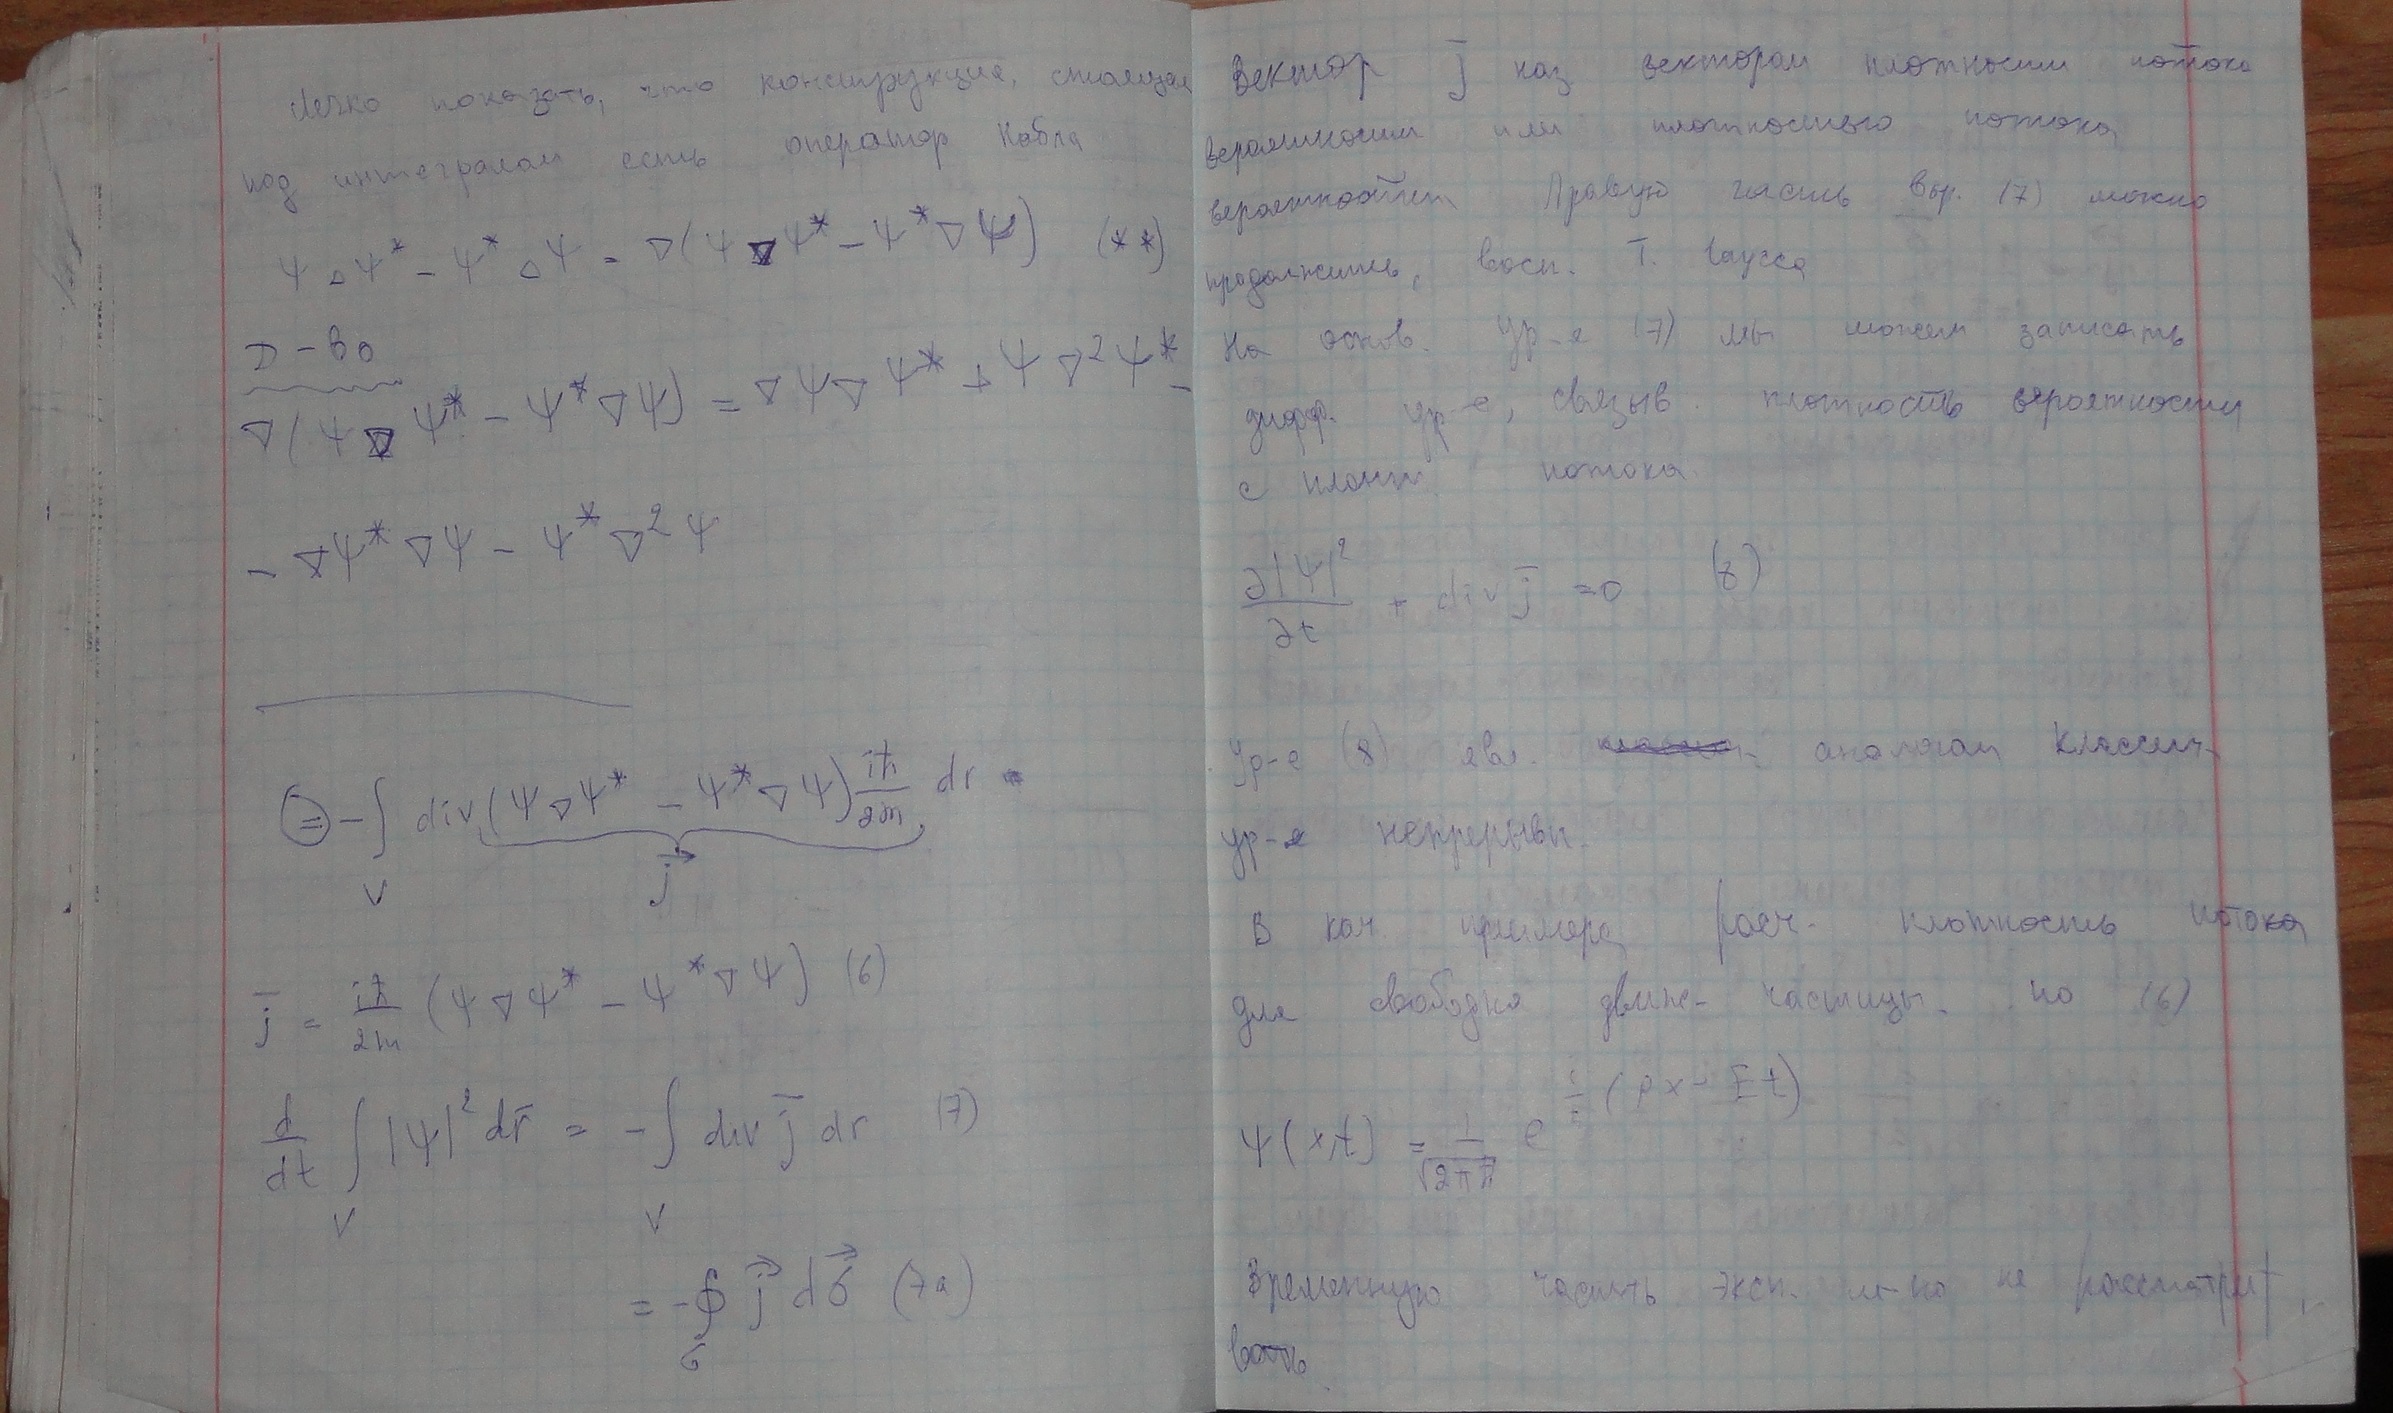 Легко показать, что конструкция, стоящая
под интегралом есть оператор Набла
Ψ △ Ψ* − Ψ* △ Ψ = ∇(Ψ ∇ Ψ* − Ψ* ∇ Ψ) (**)
Д-во
∇(Ψ ∇ Ψ* − Ψ* ∇Ψ) = ∇Ψ∇Ψ* + Ψ∇²Ψ* −
− ∇Ψ* ∇Ψ − Ψ* ∇²Ψ
= − ∫ div(Ψ∇Ψ* − Ψ*∇Ψ) iħ/2m dr
V j⃗
j̄ = iħ/2m (Ψ∇Ψ* − Ψ*∇Ψ) (6)
d/dt ∫ |Ψ|² dr̄ = − ∫ div j̄ dr (7)
V V
= − ∮ j⃗ dσ⃗ (7а)
σ
Вектор j̄ наз вектором плотности потока
вероятности или плотностью потока
вероятности Правую часть выр. (7) можно
продолжить, восп. т. Гаусса
На основ. ур-я (7) мы можем записать
дифф. ур-е, связыв. плотность вероятности
с плотн потока.
∂|Ψ|²/∂t + div j̄ = 0 (8)
Ур-е (8) явл. аналогом классич-
ур-я непрерывн.
В кач примера расч. плотность потока
для свободно движ- частицы. по (6)
Ψ(x,t) = 1/√2πħ e^{i/ħ (px − Et)}
Временную часть эксп. м-но не рассматри-
вать